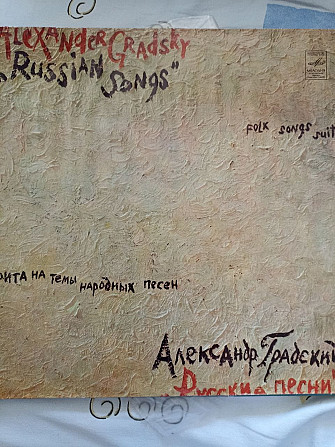 Alexander Gradsky
„Russian Songs"
МЕЛОДИЯ
folk songs suit
юита на темы народных песен
Александр Градский
„Русские песни"